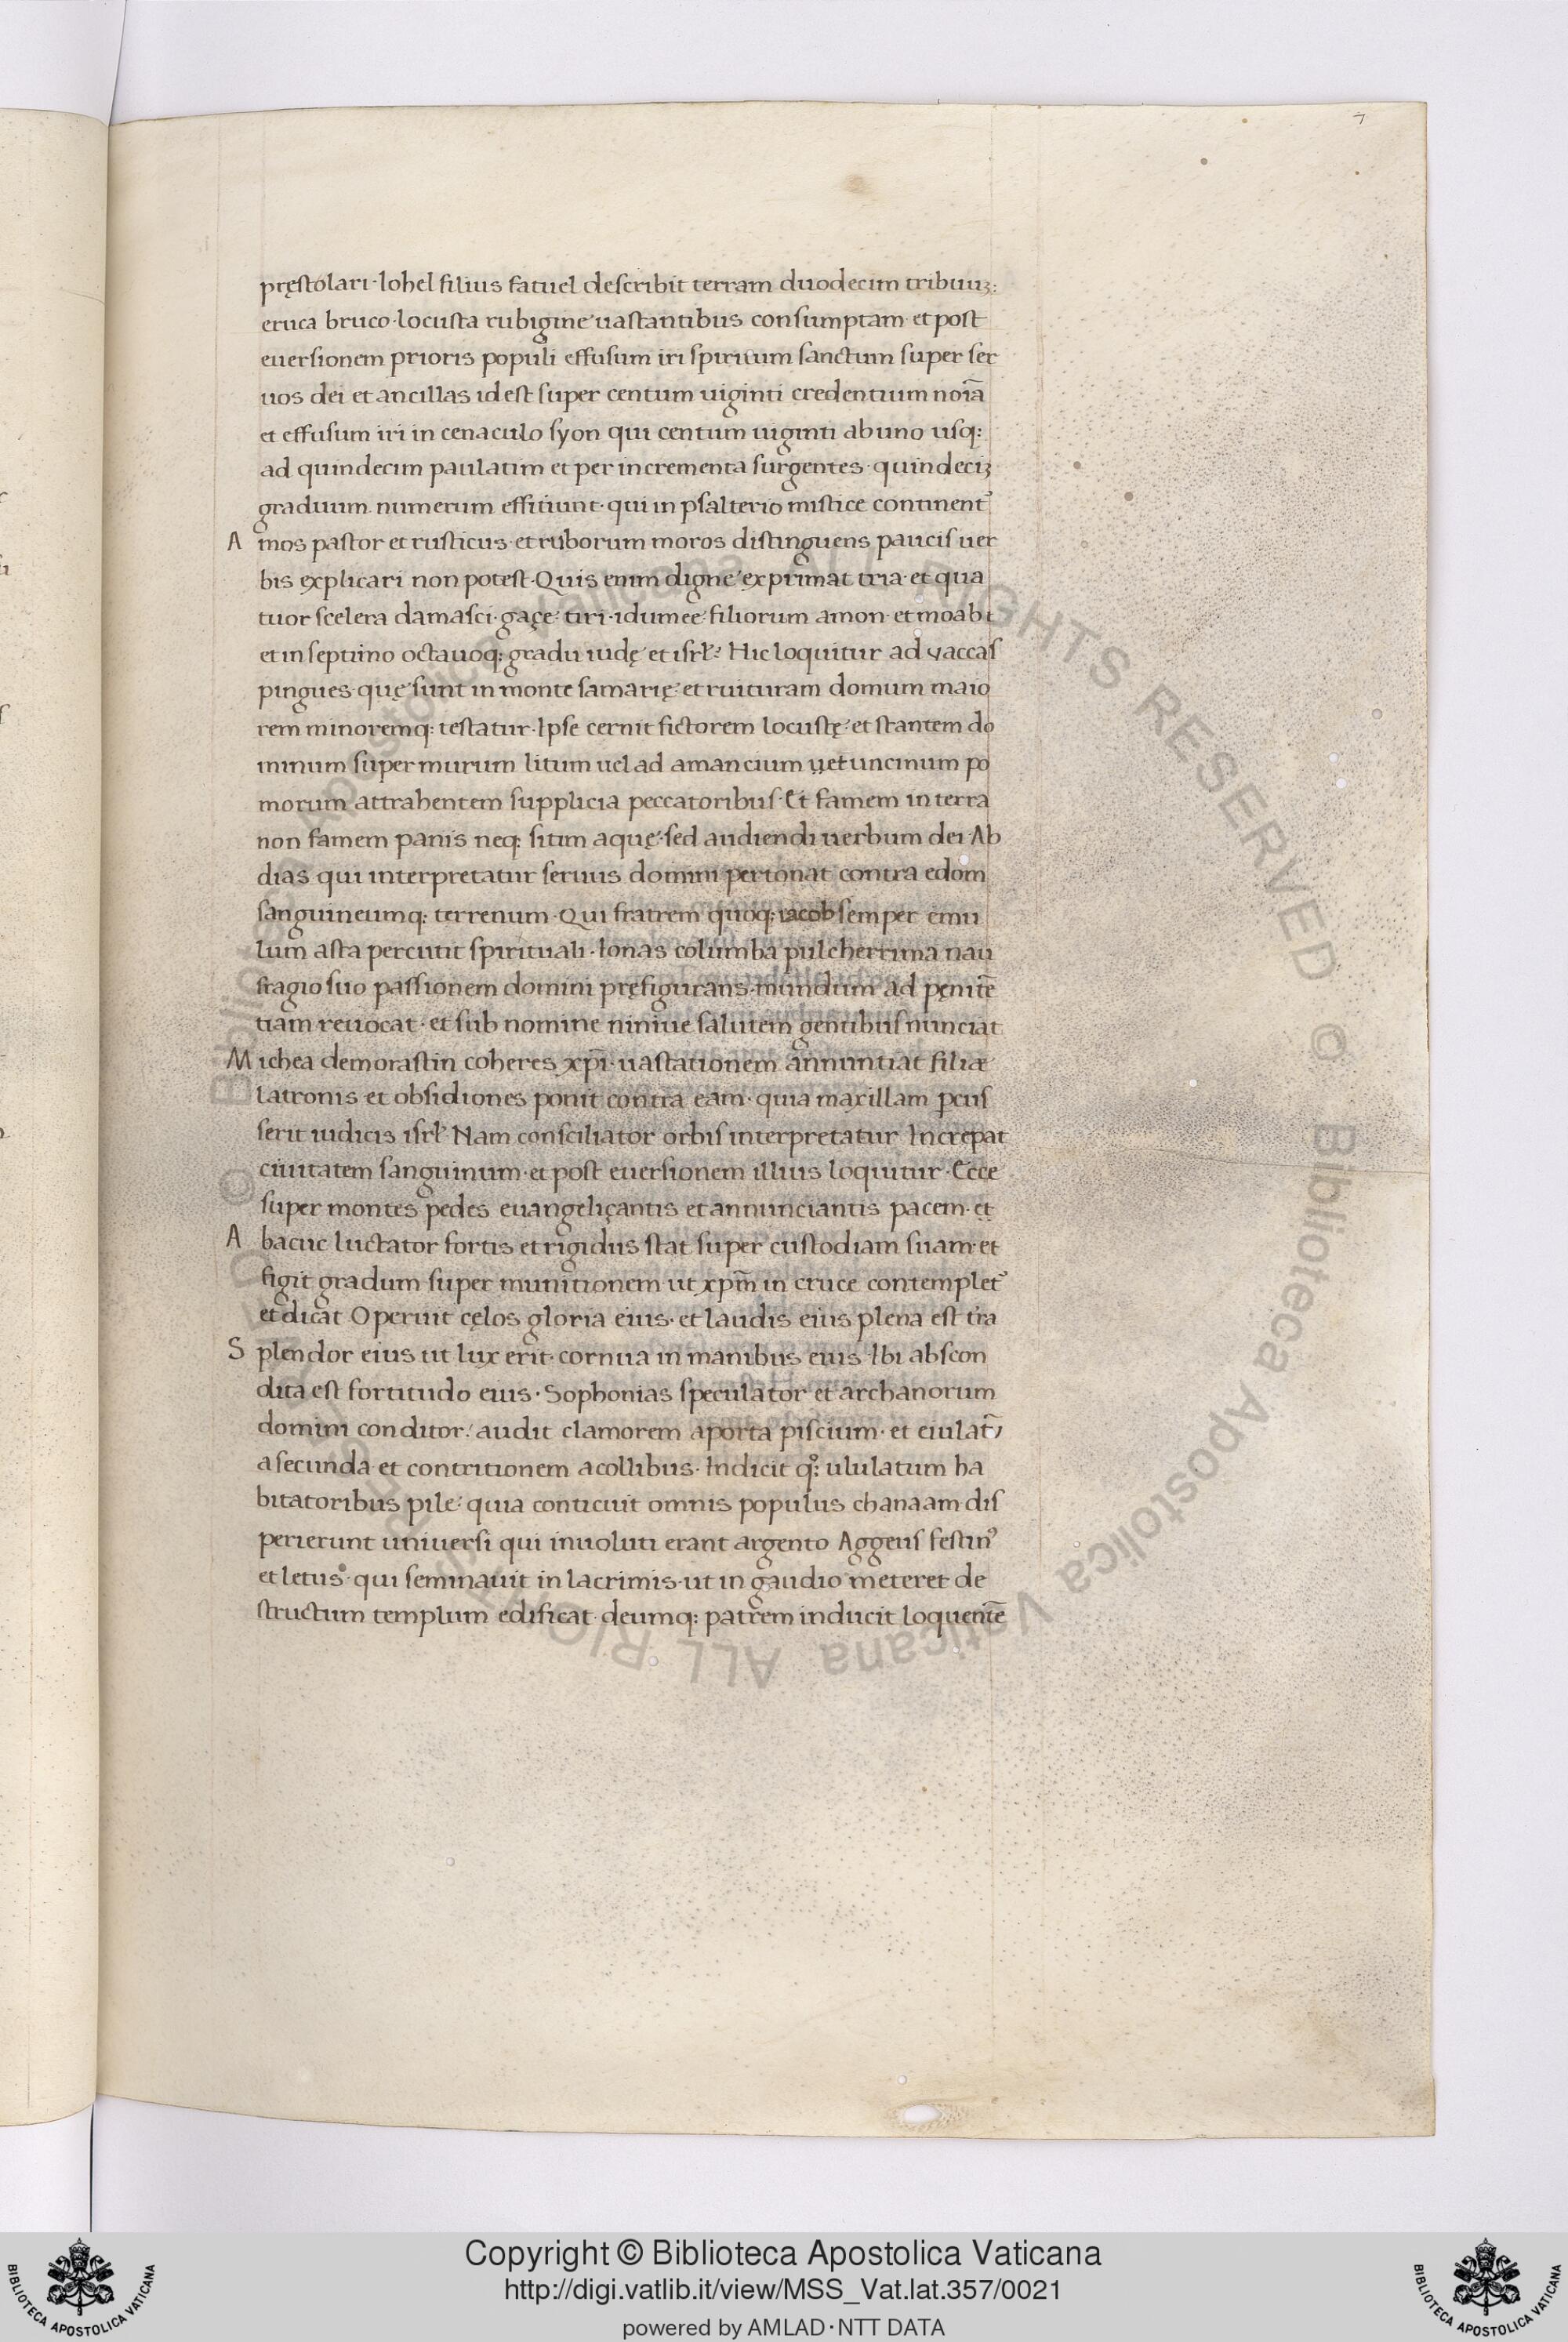 7
pręstolari · Iohel filius fatuel describit terram duodecim tribuuꝫ:
eruca bruco · locusta rubigine uastantibus consumptam · et post
euersionem prioris populi effusum iri spiritum sanctum super ser
uos dei et ancillas idest super centum uiginti credentium noīa
et effusum iri in cenaculo syon qui centum uiginti ab uno usq:
ad quindecim paulatim et per incrementa surgentes · quindeciꝫ
graduum numerum effitiunt · qui in psalterio mistice continent᾽
A mos pastor et rusticus et ruborum moros distinguens paucis uer
bis explicari non potest · Quis enim digne exprimat tria · et qua
tuor scelera damasci · gaçe tiri · idumee filiorum amon · et moab ·
et in septimo octauoq: gradu iudę et isrł? Hic loquitur ad vaccas
pingues quę sunt in monte samarię et ruituram domum maio
rem minoremq: testatur · Ipse cernit fictorem locustę et stantem do
minum super murum litum uel ad amancium uel uncinum po
morum attrahentem supplicia peccatoribus · Et famem in terra
non famem panis neq: sitim aquę · sed audiendi uerbum dei · Ab
dias qui interpretatur seruus domini pertonat contra edom
sanguineumq: terrenum · Qui fratrem quoq: iacob semper emu
lum asta percutit spirituali · Ionas columba pulcherrima nau
fragio suo passionem domini pręfigurans · mundum ad pęnitē
tiam reuocat · et sub nomine niniue salutem gentibus nunciat
M ichea demorastin coheres xp̄i · uastationem annuntiat filiæ
latronis et obsidiones ponit contra eam · quia maxillam ꝑcus
serit iudicis isrł Nam consciliator orbis interpretatur Increpat
ciuitatem sanguinum · et post euersionem illius loquitur · Ecce
super montes pedes euangeliçantis et annunciantis pacem · et
A bacuc luctator fortis et rigidus stat super custodiam suam · et
figit gradum super munitionem ut xp̄m in cruce contemplet᾽
et dicat Operuit cęlos gloria eius · et laudis eius plena est tr̄a
S plendor eius ut lux erit · cornua in manibus eius Ibi abscon
dita est fortitudo eius · Sophonias speculator et archanorum
domini conditor / audit clamorem aporta piscium · et eiulatū
a secunda et contritionem a collibus · Indicit qͦ: ululatum ha
bitatoribus pile quia conticuit omnis populus chanaam dis
perierunt uniuersi qui inuoluti erant argento Aggeus festinꝰ
et letus · qui seminauit in lacrimis · ut in gaudio meteret de
structum templum edificat deumq: patrem inducit loquentē
© Biblioteca Apostolica Vaticana ALL RIGHTS RESERVED © Biblioteca Apostolica Vaticana ALL RIGHTS RESERVED
Copyright © Biblioteca Apostolica Vaticana
http://digi.vatlib.it/view/MSS_Vat.lat.357/0021
powered by AMLAD·NTT DATA
BIBLIOTECA APOSTOLICA VATICANA
BIBLIOTECA APOSTOLICA VATICANA